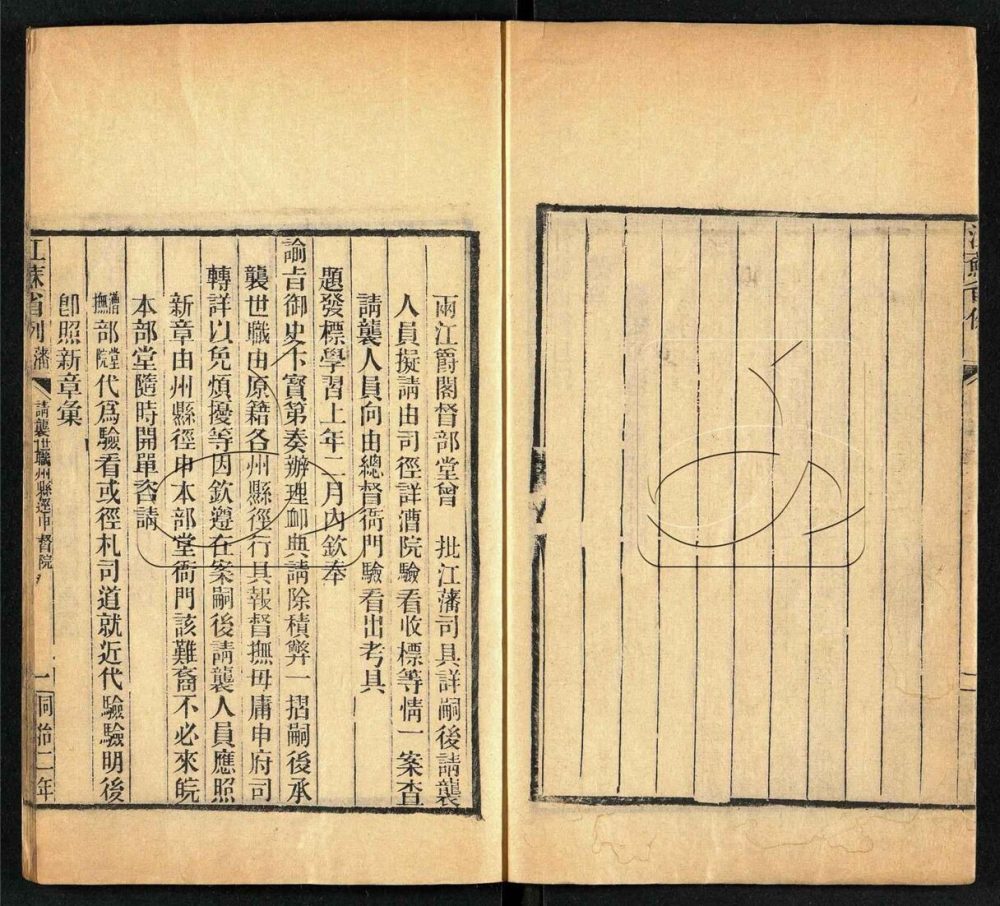 江蘇省例
二
兩江爵閣督部堂曾　批江藩司具詳嗣後請襲
人員擬請由司徑詳漕院驗看收標等情一案查
請襲人員向由總督衙門驗看出考具
題發標學習上年二月內欽奉
諭旨御史卞寶第奏辦理卹典請除積弊一摺嗣後承
襲世職由原籍各州縣徑行具報督撫毋庸申府司
轉詳以免煩擾等因欽遵在案嗣後請襲人員應照
新章由州縣徑申本部堂衙門該難裔不必來皖
本部堂隨時開單咨請
漕撫部堂院代爲驗看或徑札司道就近代驗驗明後
卽照新章彙
江蘇省例藩　請襲世職州縣逕申督院　一　同治二年